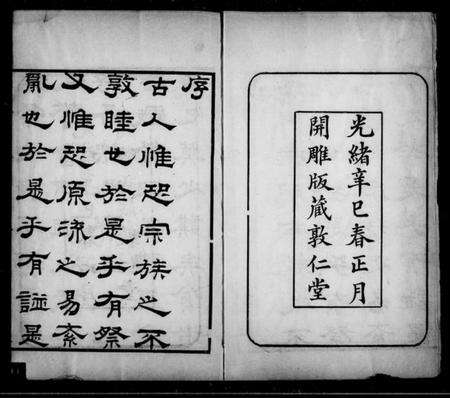 光緒辛巳春正月
開雕版藏敦仁堂
序
古人惟恐宗族之不
敦睦也於是乎有祭
又惟恐原流之易紊
亂也於是乎有譜是